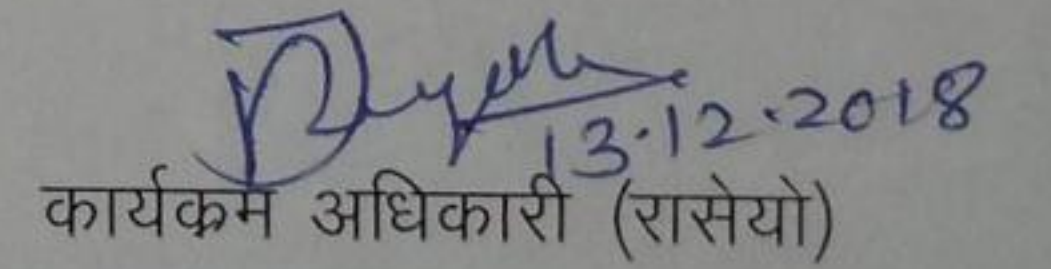 13.12.2018
कार्यक्रम अधिकारी (रासेयो)